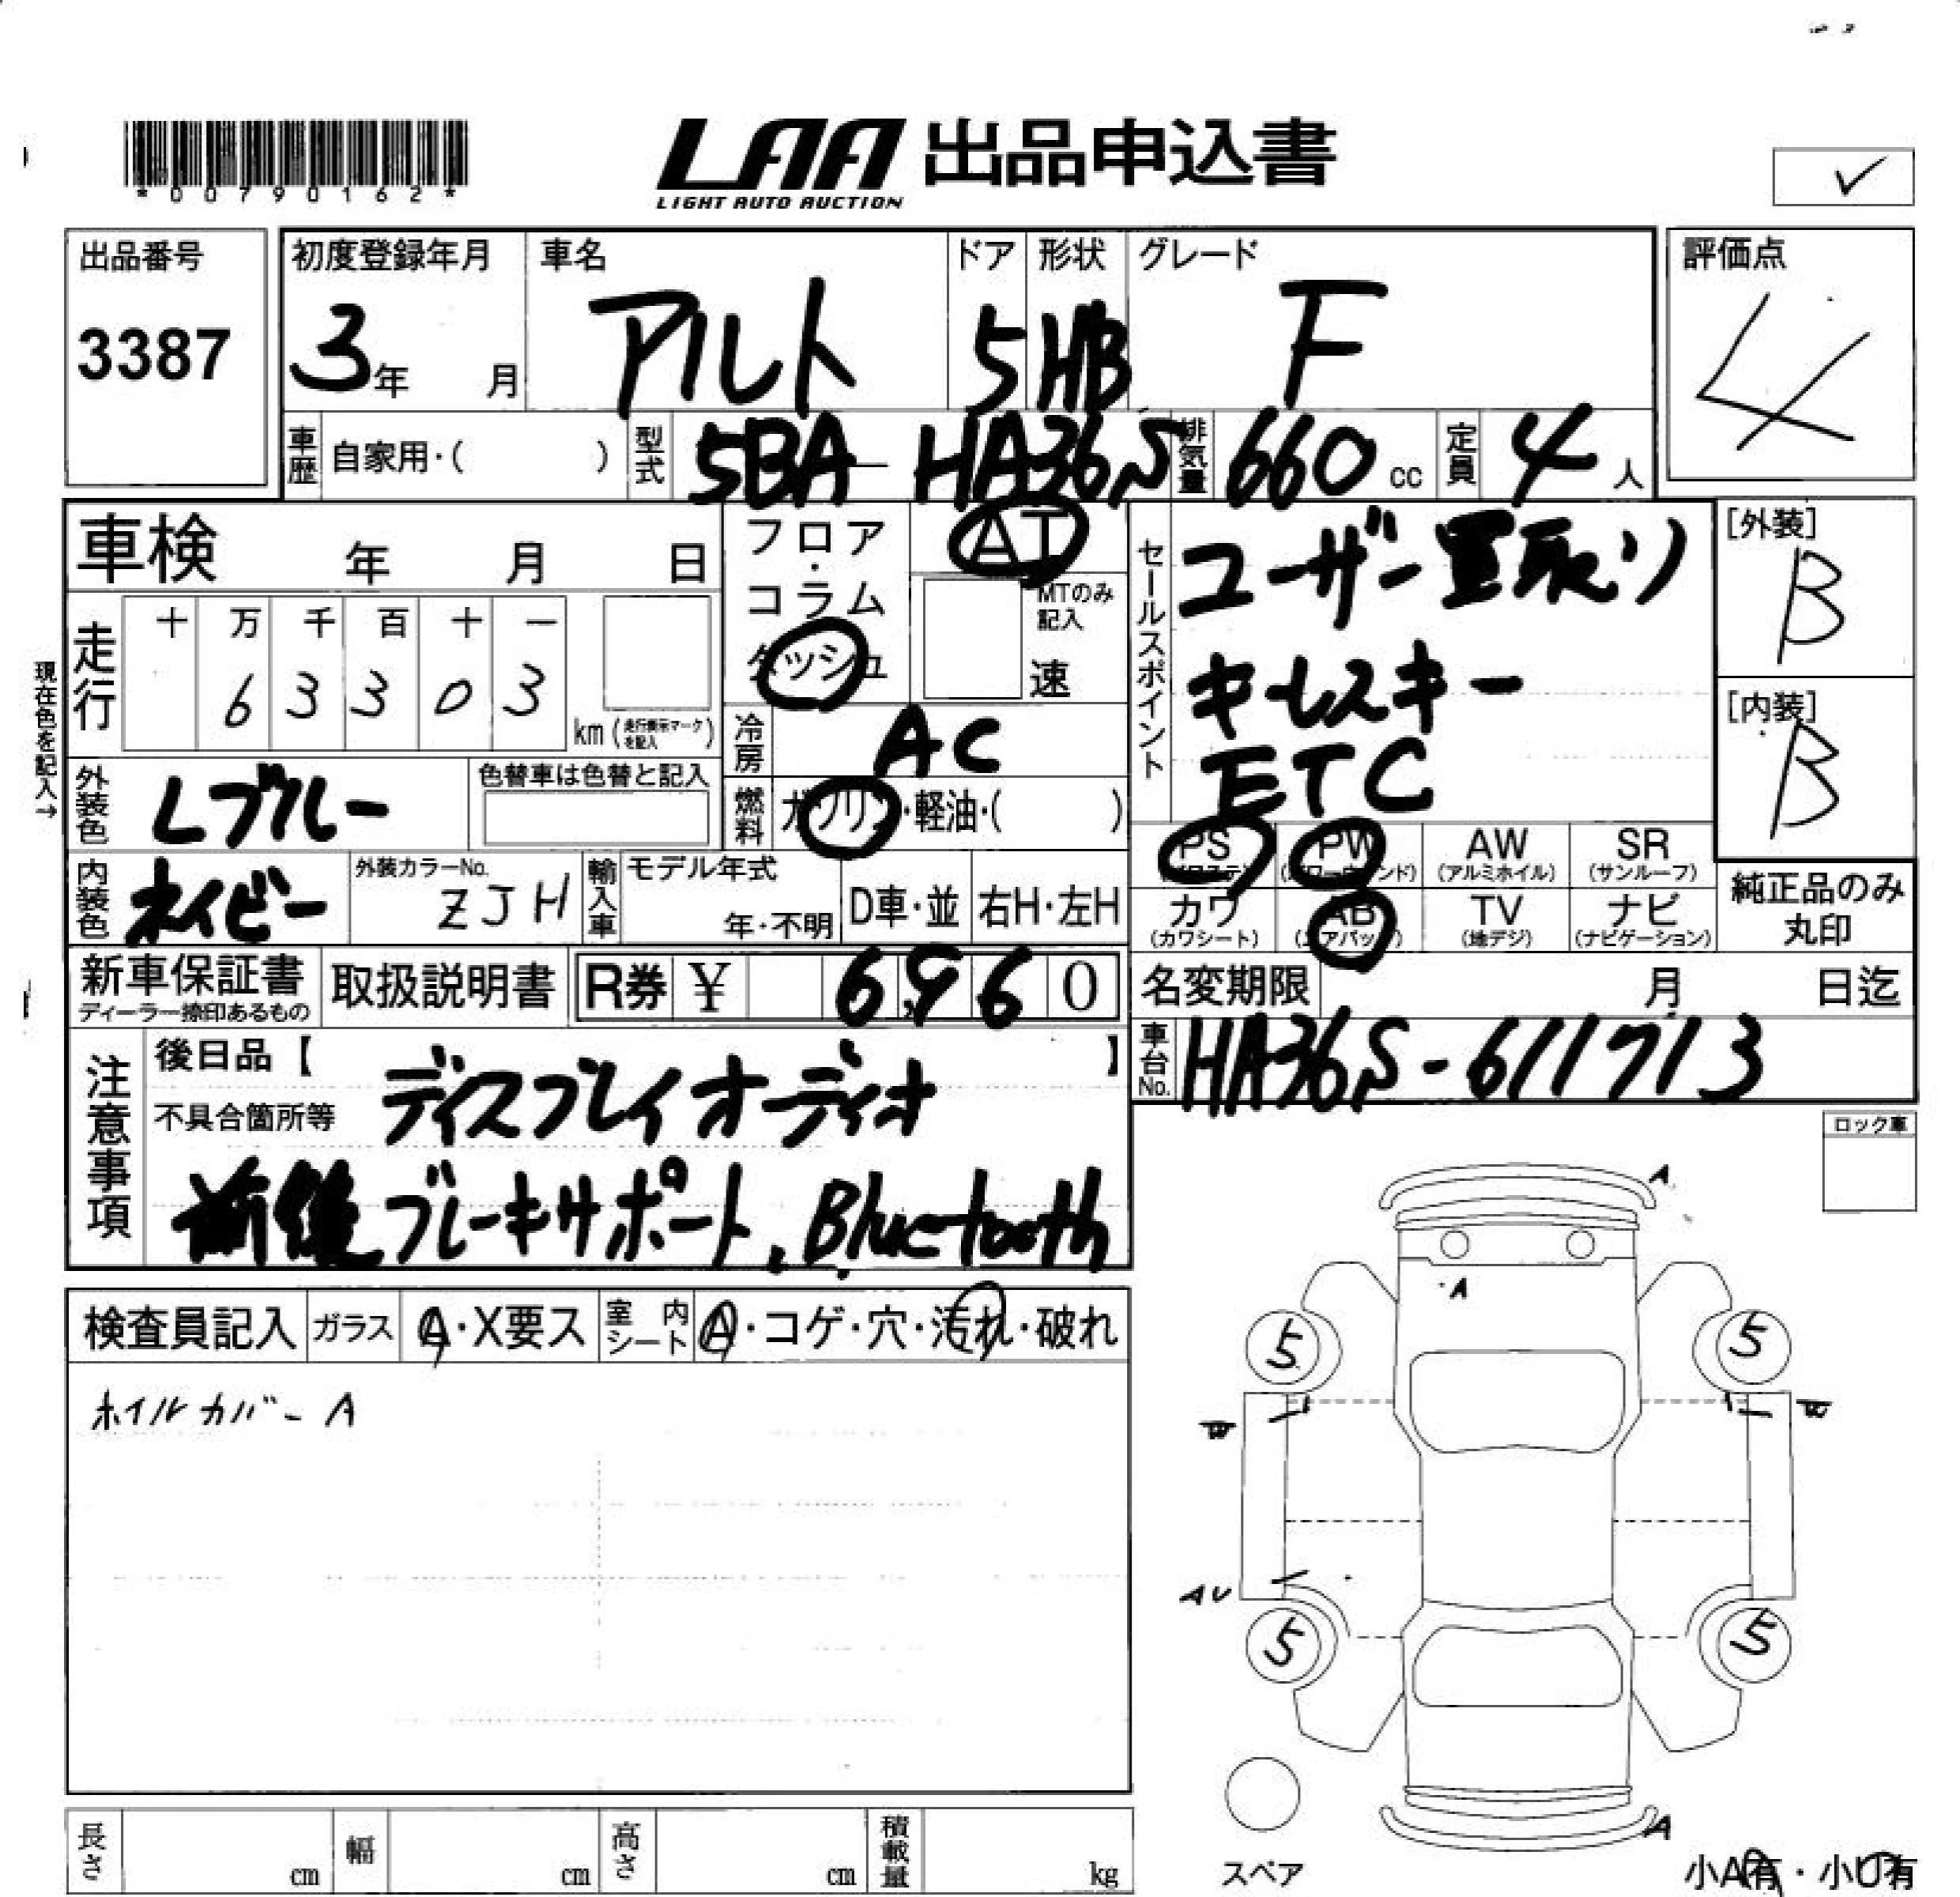 *00790162*
LAA 出品申込書
LIGHT AUTO AUCTION
出品番号
3387
初度登録年月
3年 月
車名
アルト
ドア
5
形状
HB
グレード
F
評価点
4
車歴 自家用・( )
型式 5BA-HA36S
排気量 660cc
定員 4人
車検 年 月 日
フロア・コラム・ダッシュ
AT
MTのみ記入
速
走行
十 万 千 百 十 一
6 3 3 0 3
km(走行表示マークを記入)
現在色を記入→
冷房 AC
燃料 ガソリン・軽油・( )
外装色 Lブルー
色替車は色替と記入
内装色 ネイビー
外装カラーNo.
ZJH
輸入車
モデル年式
年・不明
D車・並
右H・左H
セールスポイント
ユーザー買取り
キーレスキー
ETC
[外装]
B
[内装]
B
PS
AW
(アルミホイル)
SR
(サンルーフ)
PW
(パワーウィンド)
カワ
(カワシート)
AB
(エアバッグ)
TV
(地デジ)
ナビ
(ナビゲーション)
純正品のみ
丸印
新車保証書
ディーラー捺印あるもの
取扱説明書
R券 ¥ 6,960
名変期限 月 日迄
車台No. HA36S-611713
注意事項
後日品【 】
不具合箇所等
ディスプレイオーディオ
前後ブレーキサポート、Bluetooth
ロック車
検査員記入
ガラス A・X要ス
室内シート A・コゲ・穴・汚れ・破れ
ホイルカバーA
A
A
5
5
W
W
AU
5
5
A
スペア
小A有・小U有
長さ cm
幅 cm
高さ cm
積載量 kg